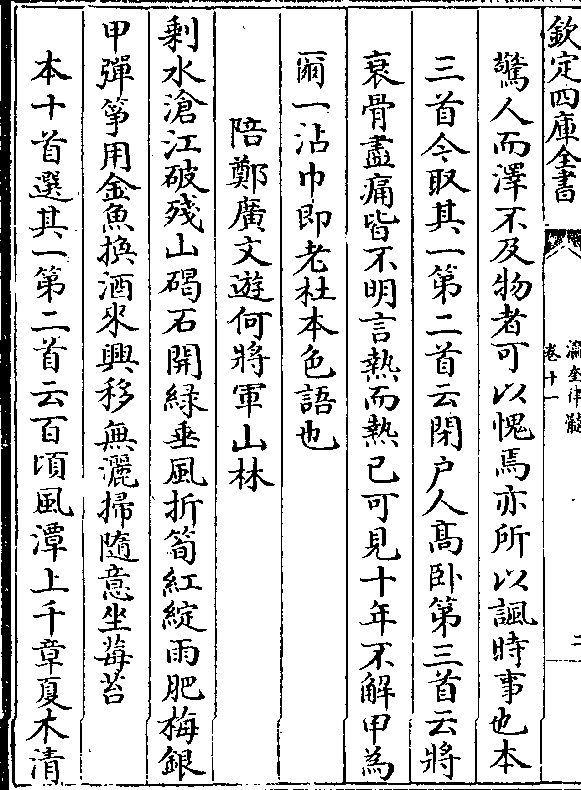 欽定四庫全書
瀛奎律髓
卷十一
二
驚人而澤不及物者可以愧焉亦所以諷時事也本
三首今取其一第二首云閉户人髙卧第三首云將
衰骨盡痛皆不明言熱而熱已可見十年不解甲為
爾一沾巾即老杜本色語也
陪鄭廣文遊何將軍山林
剩水滄江破殘山碣石開緑垂風折筍紅綻雨肥梅銀
甲彈筝用金魚換酒來興移無灑掃隨意坐莓苔
本十首選其一第二首云百頃風潭上千章夏木清